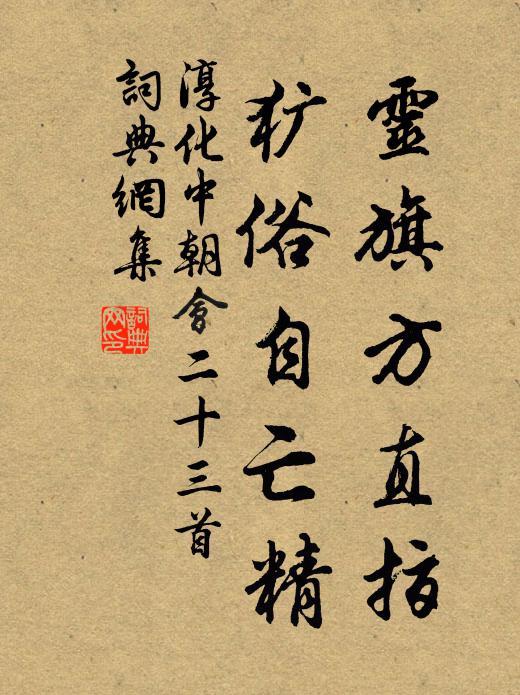 靈旗方直指
犷俗自亡精
淳化中朝會二十三首
詞典網集
詞典网印